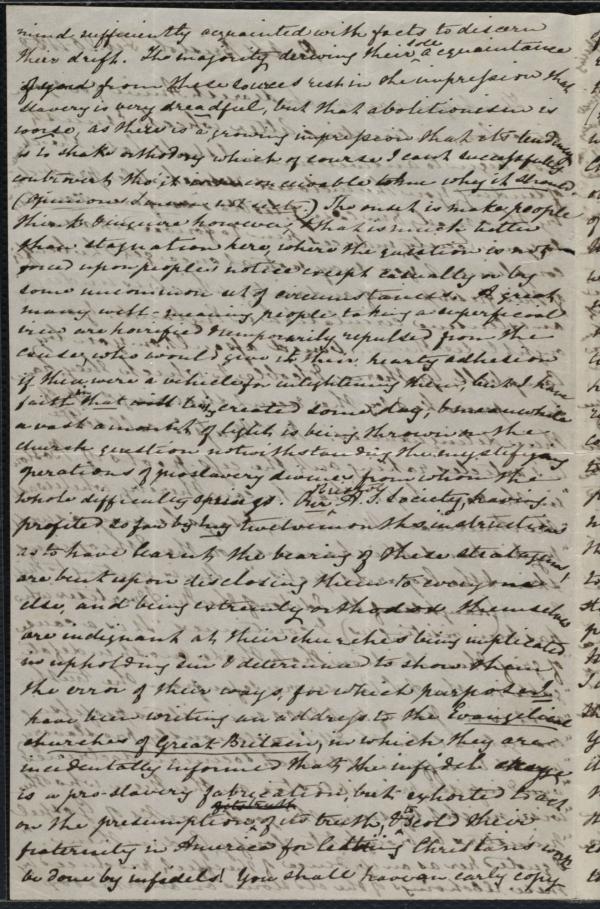 mind sufficiently acquainted with facts to discern
their drift. The majority deriving their sole acquaintance
of good from these sources rest in the impression that
slavery is very dreadful, but that abolitionism is
worse, as there is a growing impression that its tendency
is to shake orthodoxy which of course I can't successfully
controvert, tho' it is inconceivable to me why it should
(opinions) The onset is make people
think & inquire however, & that is much better
than stagnation here, where the question is not
forced upon people's notice except casually or by
some uncommon set of circumstances. A great
many well-meaning people taking a superficial
view are horrified & temporarily repulsed from the
cause, who would give it their hearty adhesion
if there were a vehicle for enlightening them, but I have
faith that will be created some day, & meanwhile
a vast amount of light is being thrown on the
church question notwithstanding the mystifying
operations of proslavery divines from whom the
whole difficulty springs. Our Bristol A. S. Society, having
profited so far by my twelvemonths instruction
as to have learnt the bearing of these stratagems,
are bent upon disclosing them to everyone
else, and being extremely orthodox themselves
are indignant at their churches being implicated
in upholding sin & determined to show them
the error of their ways, for which purpose I
have been writing an address to the Evangelical
churches of Great Britain, in which they are
incidentally informed that the infidel charge
is a pro-slavery fabrication, but exhorted to act
on the presumption of its truth, & to scold their
fraternity in America for letting Christians work
be done by infidels! You shall have an early copy